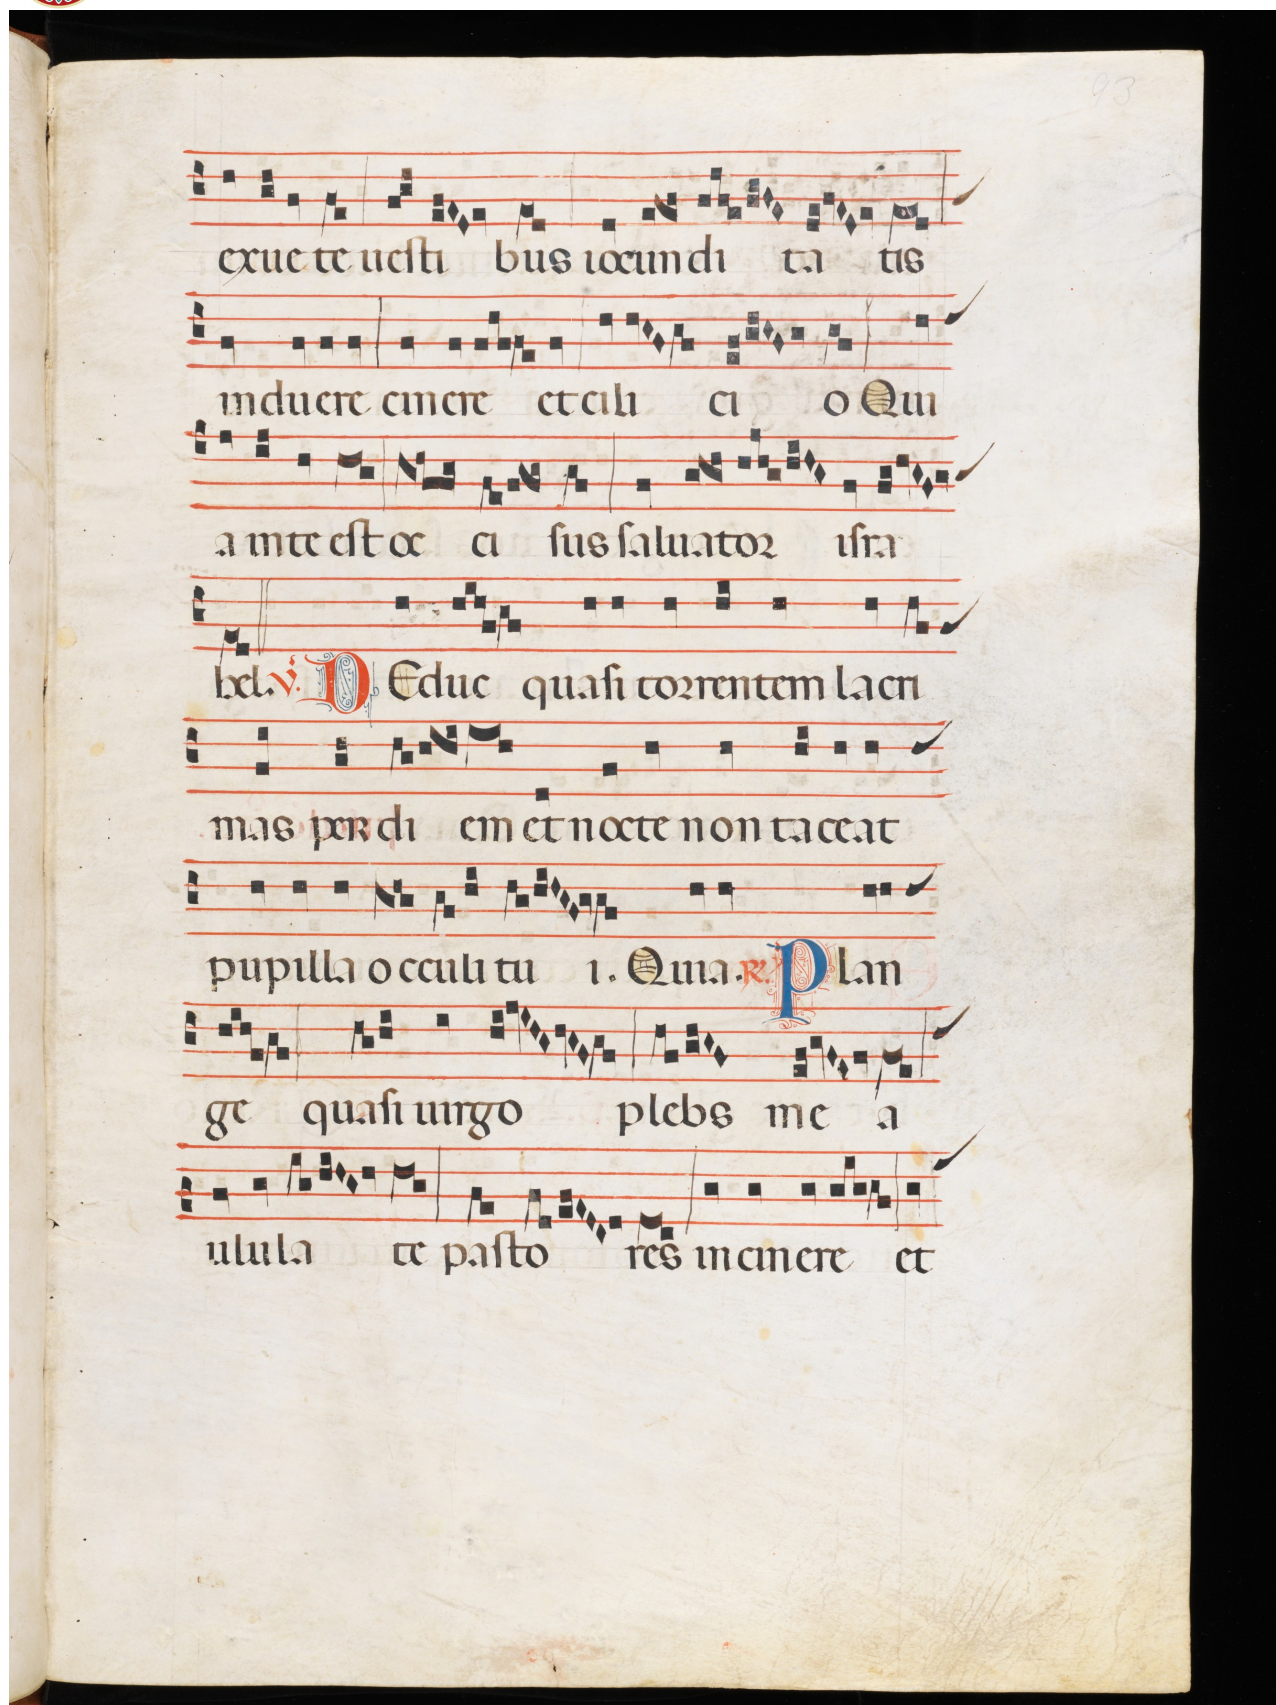 93
exuete uesti bus iocundi ta tis
induere cinere et cili ci o Qui
a in te est oc ci sus saluator isra
hel. V. DEduc quasi torrentem lacri
mas per di em et nocte non taceat
pupilla occuli tu i. Quia. R. Plan
ge quasi uirgo plebs me a
ulula te pasto res in cinere et